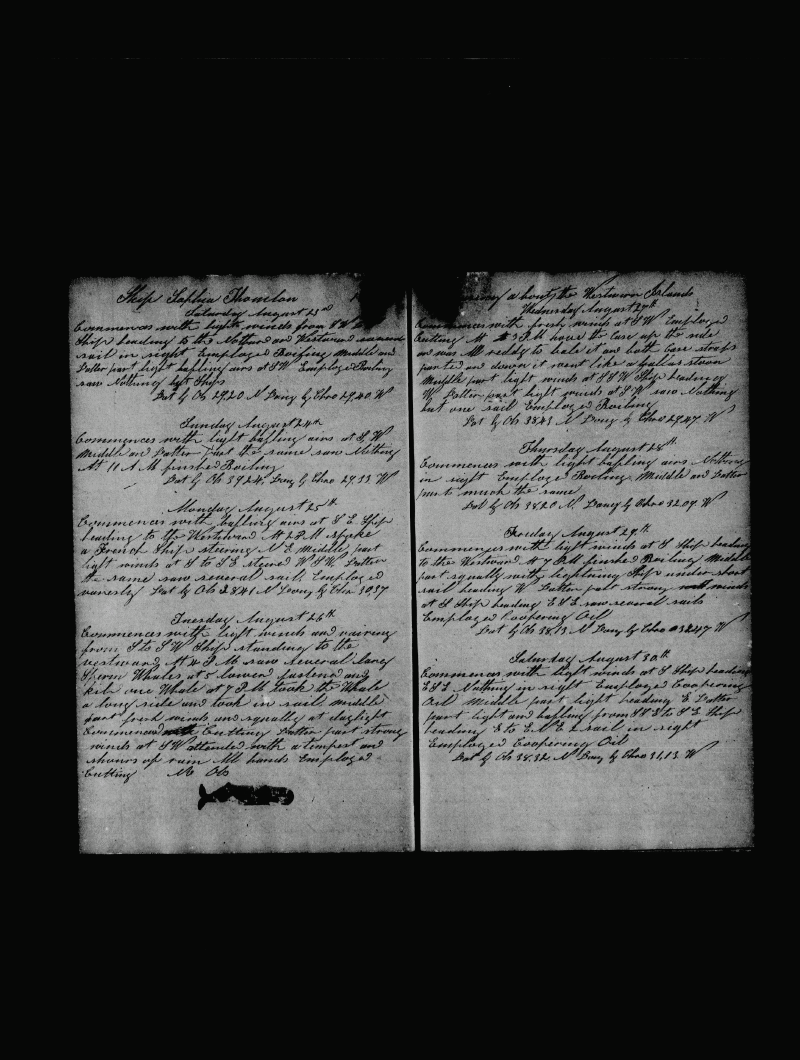 Ship Sophia Thornton
Saturday August 23rd
Commences with light winds from SW
Ship heading to the Nothard and Westward
sail in sight Employed Boiling Middle and
Latter part light bafling airs at SW Employed Boiling
saw Nothing but Ships
Lat by Ob 39,20 N Long by Chro 29,40 W
Sunday August 24th
Commences with light bafling airs at S, W
Middle and Latter part the same saw Nothing
At 11 A M finished Boiling
Lat by Ob 39,24, Long by Chro 29,33 W
Monday August 25th
Commences with bafling airs at S E Ship
heading to the Westward At 2 P M spoke
a French Ship steering N E Middle part
light winds at S to S E steered W S W Latter
the same saw several sail Employed
variously Lat by Ob 3841 N Long by Chr 3037
Tuesday August 26th
Commences with light winds and vairing
from S to S W Ship standing to the
westward At 4 P M saw several large
Sperm Whales at 5 lowerd fastend and
kild one Whale at 7 P M Took the Whale
a long side and took in sail Middle
part fresh winds and squally at daylight
Commenced Cutting Latter part strong
winds at S W attended with a tempest and
showrs of rain All hands Employed
Cutting No Ob
a bout the Western Islands
Wednesday August 27th
Commences with fresh winds at S W Employed
Cutting At 3 P M hove the Case up the side
and was All reddy to bale it and both Case straps
parted and down it went like a ballast stoon
Middle part light winds at S S W Ship heading
W Latter part light winds at S W saw Nothing
but one sail Employed Boiling
Lat by Ob 3843 N Long by Chro 2947 W
Thursday August 28th
Commences with light bafling airs Nothing
in sight Employed Boiling Middle and Latter
part much the same
Lat by Ob 3820 N Long by Chro 3209 W
Friday August 29th
Commences with light winds at S Ship heading
to the Westward At 7 P M finished Boiling Middle
part squally with lightning Ship under short
sail heading W Latter part strong winds
at S Ship heading E S E saw several sails
Employed Coopering Oil
Lat by Ob 38,13 N Long by Chro 3247 W
Saturday August 30th
Commences with light winds at S Ship heading
E S E Nothing in sight Employed Coopering
Oil Middle part light heading E Latter
part light and bafling from S W to S E Ship
heading E to E N E 2 sail in sight
Employed Coopering Oil
Lat by Ob 38,32 N Long by Chro 31,13 W